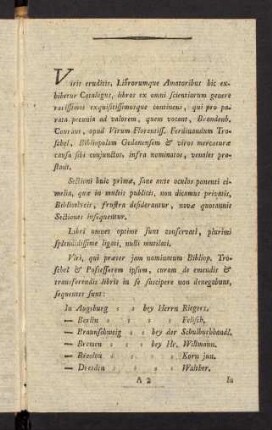 Viris eruditis, Librorumque Amatoribus hic ex-
hibetur Catalogus, libros ex omni scientiarum genere
rarissimos exquisitissimosque continens, qui pro pa-
rata pecunia ad valorem, quem vocant, Brandenb.
Courant, apud Virum Florentiss. Ferdinandum Tro-
schel, Bibliopolam Gedanensem & viros mercaturæ
causa sibi conjunctos, infra nominatos, venales pro-
stant.
Sectioni huic primæ, sane ante oculos ponenti ci-
melia, quæ in multis publicis, non dicamus privatis,
Bibliothecis, frustra desiderantur, novæ quotannis
Sectiones insequentur.
Libri omnes optime sunt conservati, plurimi
splendidissime ligati, nulli mutilati.
Viri, qui præter jam nominatum Bibliop. Tro-
schel & Possessorem ipsum, curam de emendis &
transferendis libris in se suscipere non denegabunt,
sequentes sunt:
In Augsburg : : bey Herrn Riegers.
— Berlin : : : : Felisch.
— Braunschweig : : bey der Schulbuchhandl.
— Bremen : : bey Hr. Willmann.
— Breslau : : : : Korn jun.
— Dresden : : : : Walther.
A 2 In